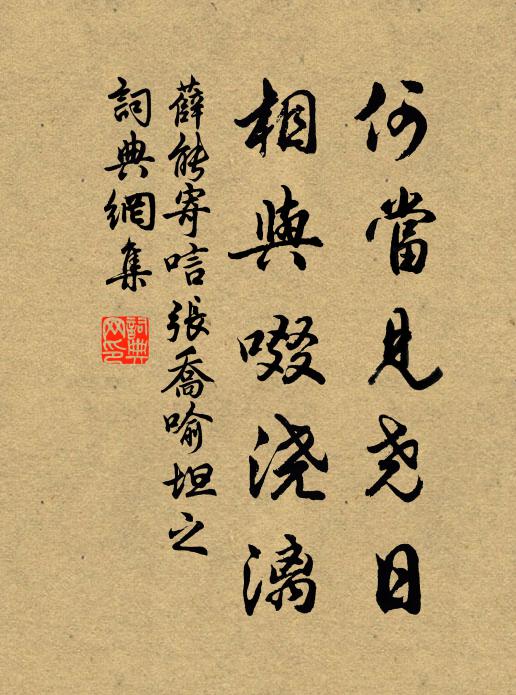 何當見尧日
相與啜浇漓
薛能寄唁張喬喻坦之
詞典網集
詞典網印